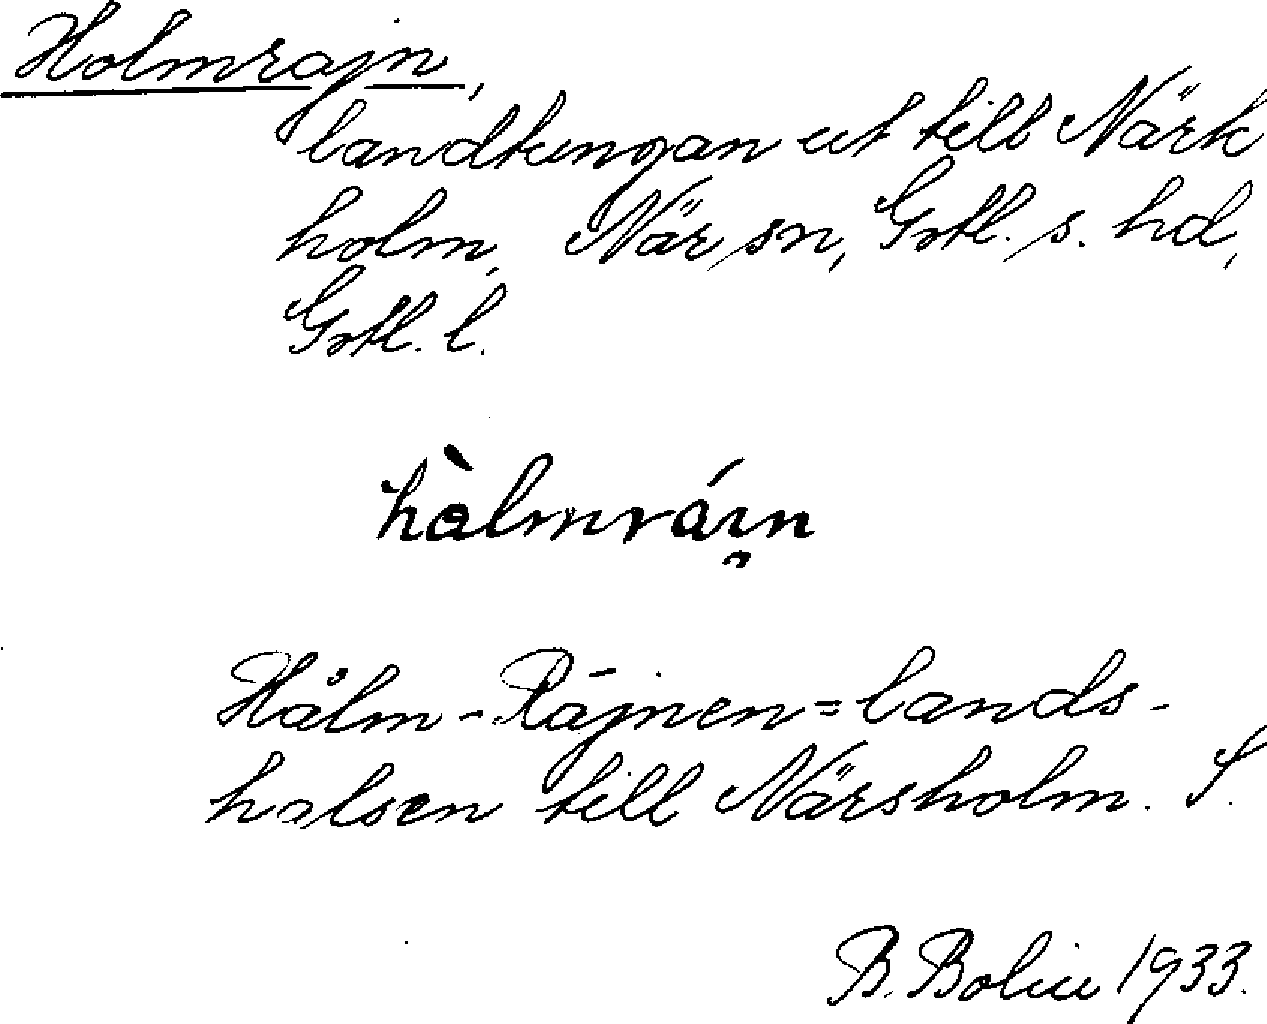 Holmrajn,
landtungan ut till Närk
holm, När sn, Gotl. s. hd,
Gotl. l.
hòlmráɪ̯n
Hålm-Rájnen = lands-
halsen till Närsholm. S.
B. Bolin 1933.